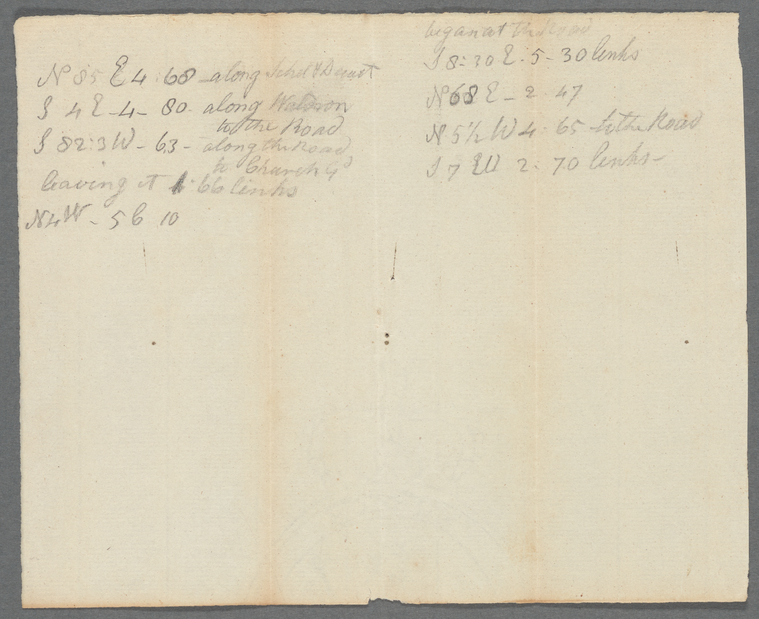 N 85 E 4 : 68 - along
S 4 E - 4 - 80 - along Waldron
to the Road
S 82:3 W - 63 - along the Road
to Church
leaving it 1 : 66 links
N 4 W - 5 C 10
began at the Road
S 8:30 E . 5 - 30 links
N 68 E - 2 - 47
N 5 1/2 W 4 - 65 - to the Road
S 7 W 2 - 70 links -